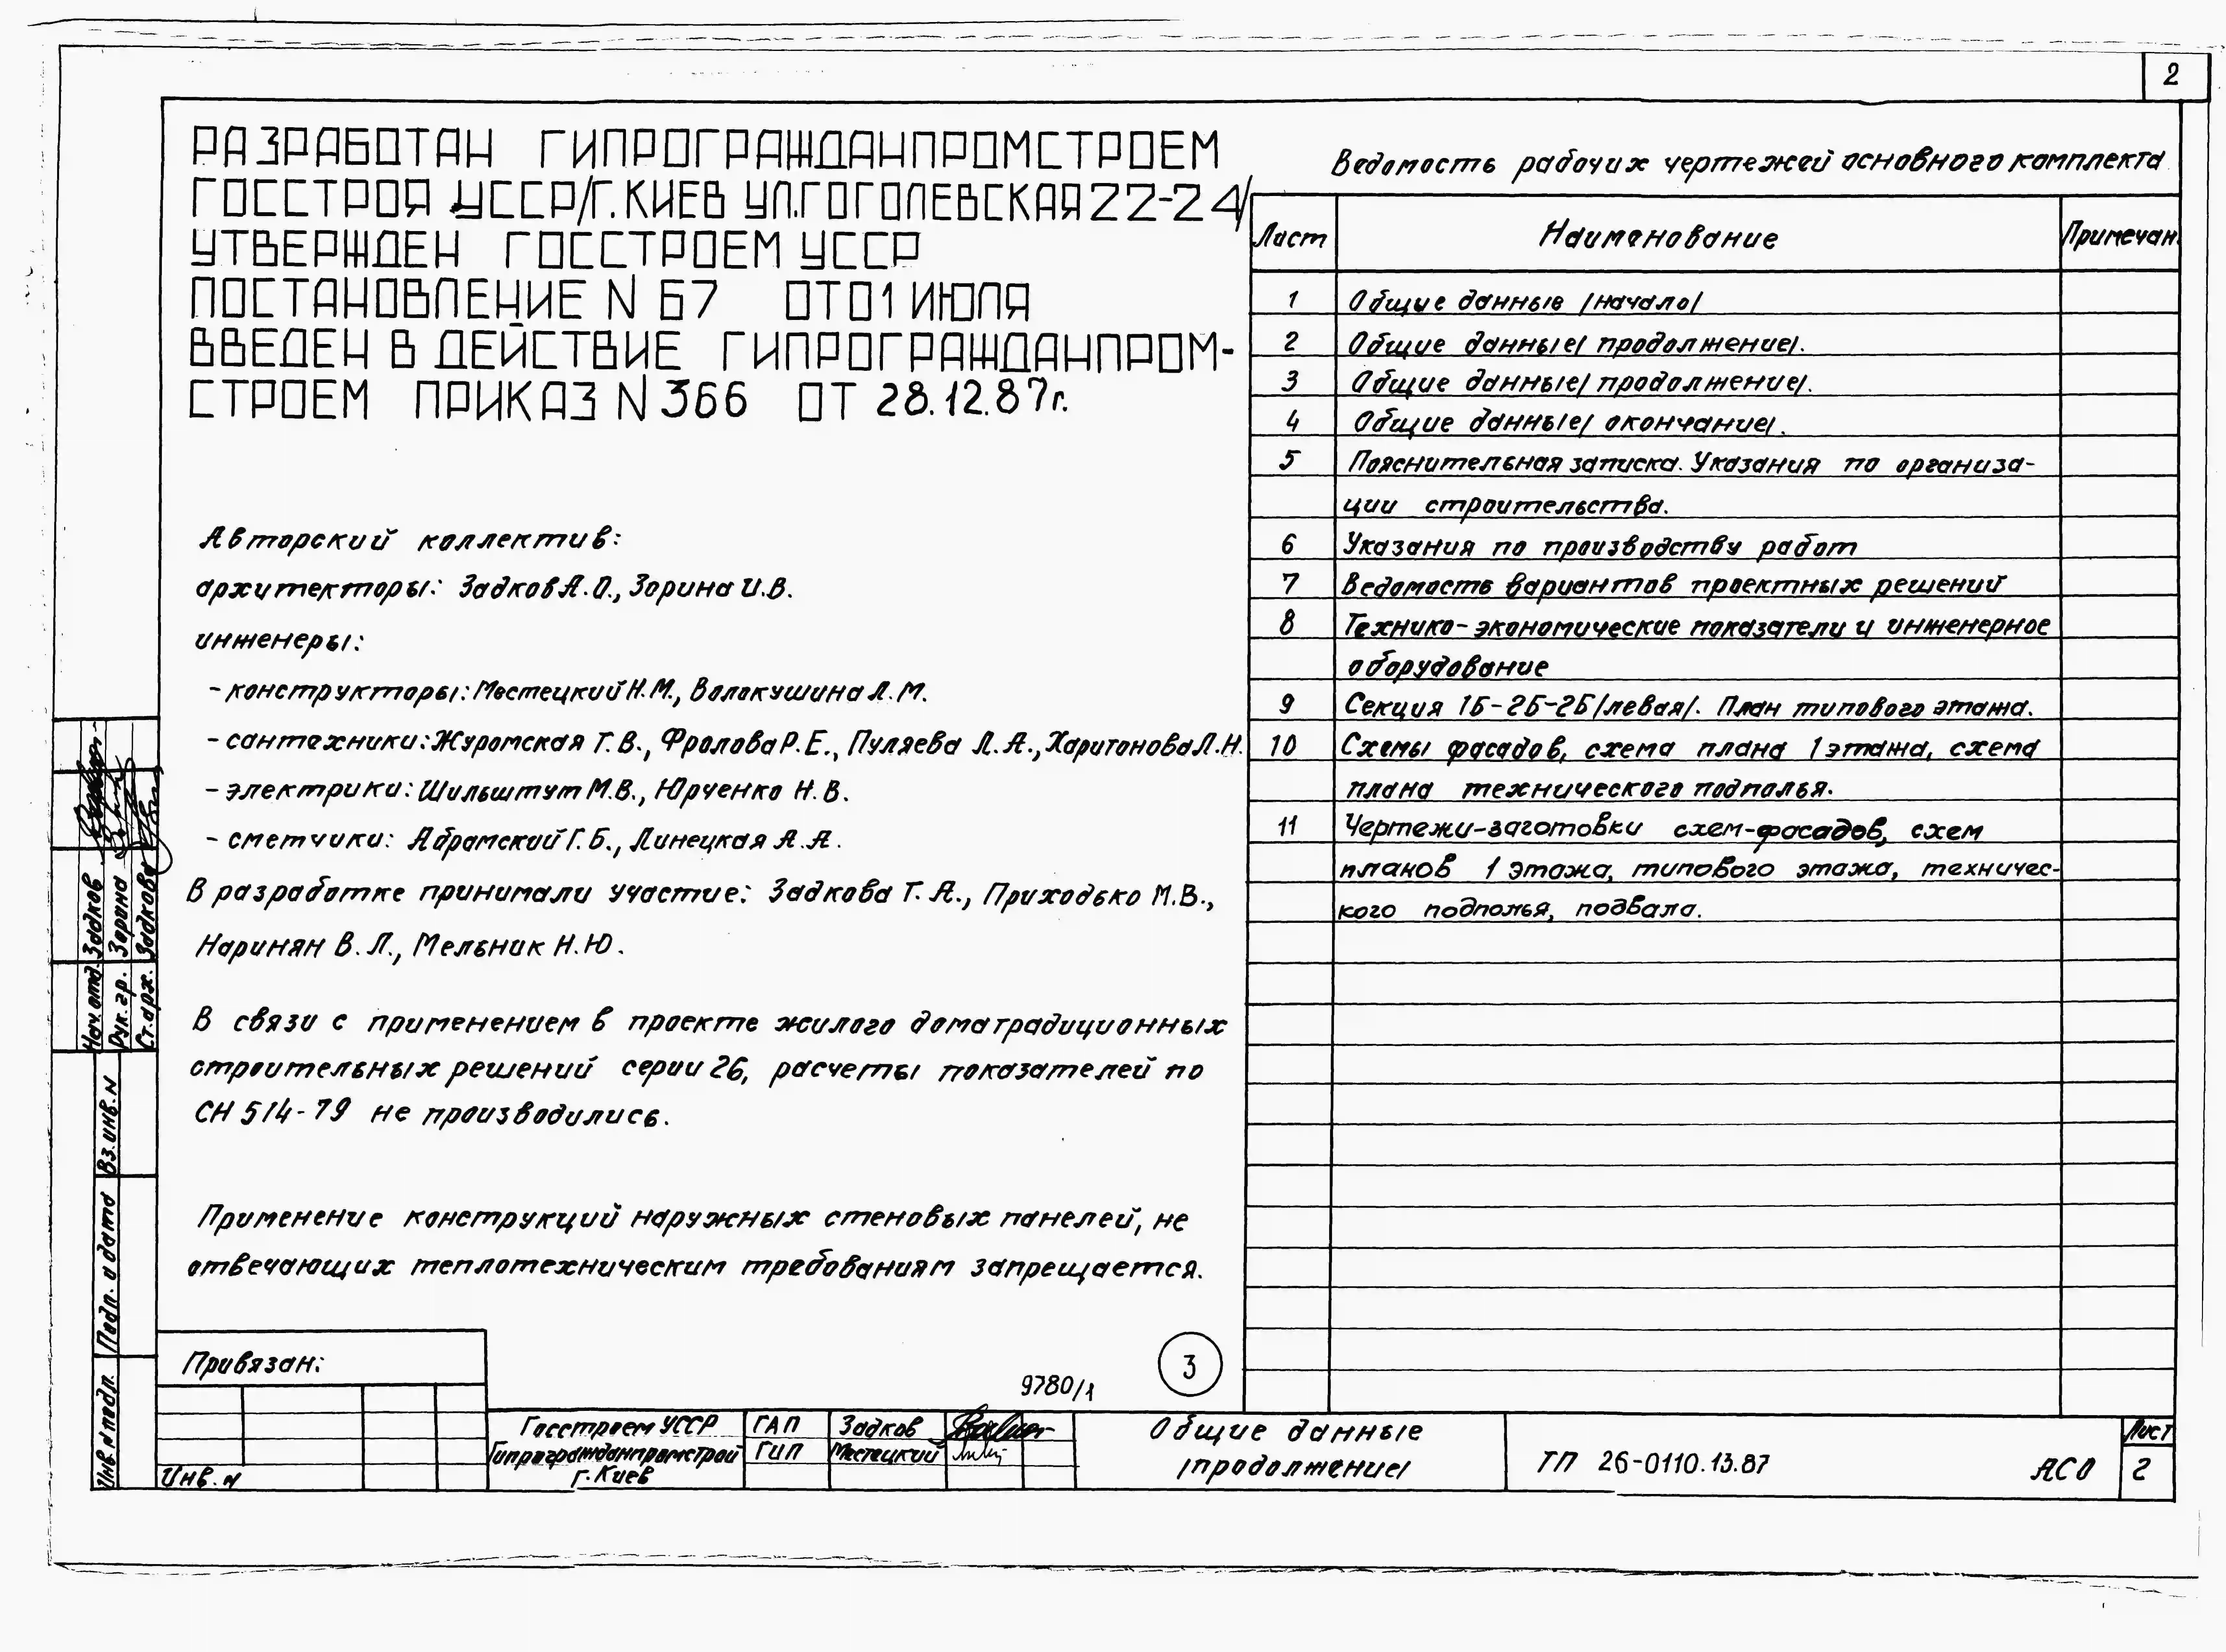 2
РАЗРАБОТАН ГИПРОГРАЖДАНПРОМСТРОЕМ
ГОССТРОЯ УССР/Г.КИЕВ УЛ.ГОГОЛЕВСКАЯ 22-24/
УТВЕРЖДЕН ГОССТРОЕМ УССР
ПОСТАНОВЛЕНИЕ N 67 ОТ 01 ИЮЛЯ
ВВЕДЕН В ДЕЙСТВИЕ ГИПРОГРАЖДАНПРОМ-
СТРОЕМ ПРИКАЗ N 366 ОТ 28.12.87г.
Авторский коллектив:
архитекторы: Задков А.О., Зорина И.В.
инженеры:
- конструкторы: Местецкий Н.М., Волокушина Л.М.
- сантехники: Журомская Т.В., Фролова Р.Е., Пуляева Л.А., Харитонова Л.Н.
- электрики: Шильштут М.В., Юрченко Н.В.
- сметчики: Абрамский Г.Б., Линецкая А.А.
В разработке принимали участие: Задкова Т.А., Приходько М.В.,
Наринян В.Л., Мельник Н.Ю.
В связи с применением в проекте жилого дома традиционных
строительных решений серии 26, расчеты показателей по
СН 514-79 не производились.
Применение конструкций наружных стеновых панелей, не
отвечающих теплотехническим требованиям запрещается.
Ведомость рабочих чертежей основного комплекта
Лист Наименование Примечан.
1 Общие данные /начало/
2 Общие данные/ продолжение/.
3 Общие данные/ продолжение/.
4 Общие данные/ окончание/.
5 Пояснительная записка. Указания по организа-
ции строительства.
6 Указания по производству работ
7 Ведомость вариантов проектных решений
8 Технико-экономические показатели и инженерное
оборудование
9 Секция 1Б-2Б-2Б/левая/. План типового этажа.
10 Схемы фасадов, схема плана 1 этажа, схема
плана технического подполья.
11 Чертежи-заготовки схем-фасадов, схем
планов 1 этажа, типового этажа, техничес-
кого подполья, подвала.
Нач.отд. Задков
Рук.гр. Зорина
Ст.арх. Задкова
Вз.инв.N
Подп. и дата
Инв.N подл.
Привязан:
Инв.N
3
9780/1
Госстроем УССР ГАП Задков
Гипрогражданпромстрой ГИП Местецкий
г. Киев
Общие данные
/продолжение/
ТП 26-0110.13.87 АСО
Лист
2